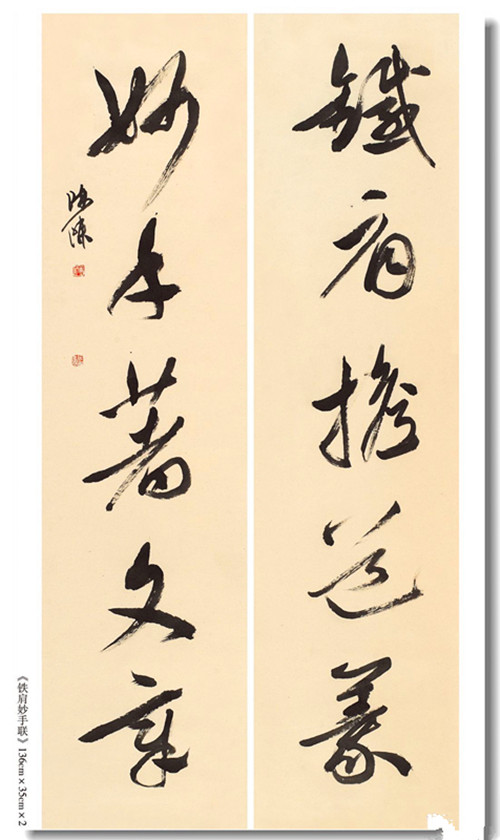 鐵肩擔道義
妙手著文章
《铁肩妙手联》136cm×35cm×2